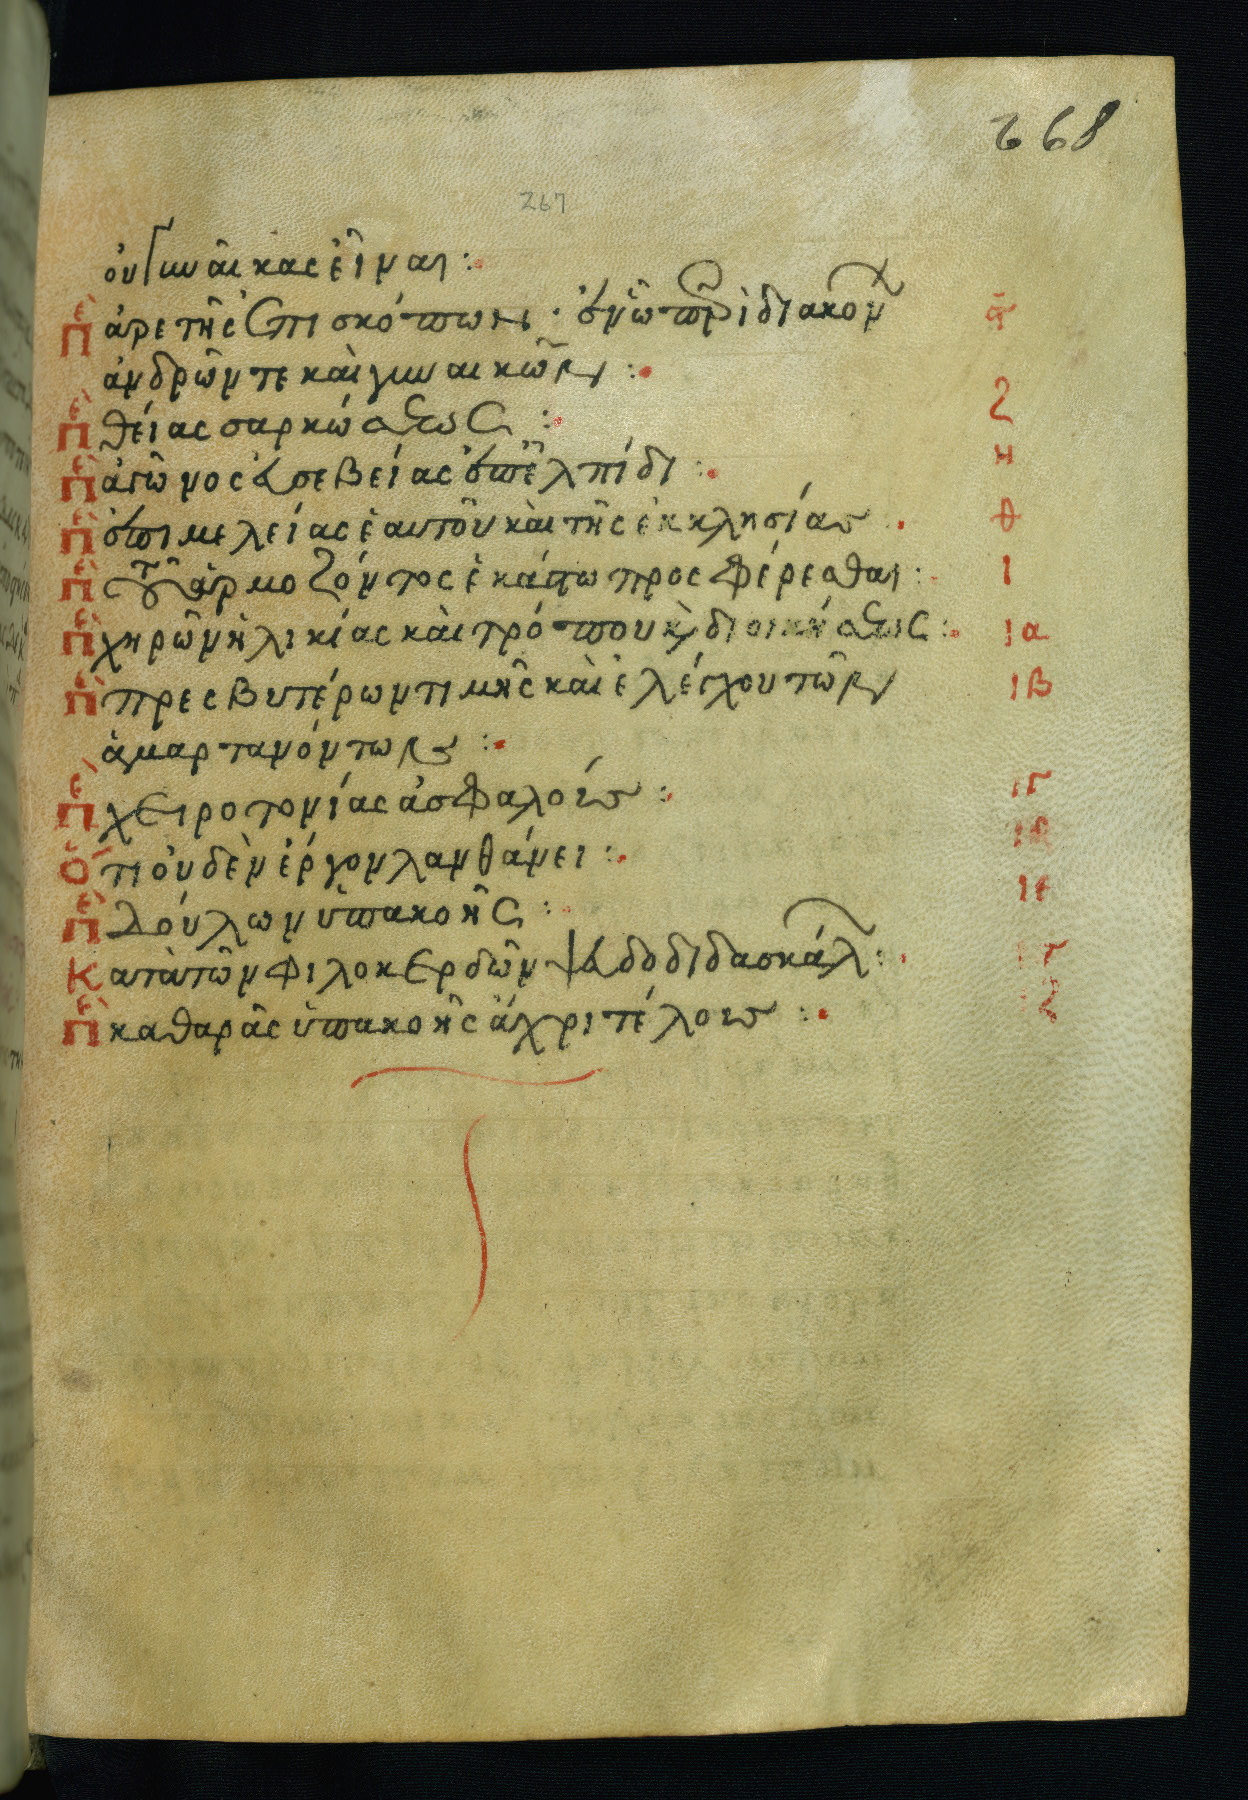 268
267
οὐ γυναῖκας εἶναι :
Πε ἀρετῆς ἐπισκόπων · ἐν ᾧ περὶ διακόν ϛ
ἀνδρῶν τε καὶ γυναικῶν :
Πε θείας σαρκώσεως : ζ
Πε ἀγῶνος εὐσεβείας ἐπ ἐλπίδι : η
Πε ἐπιμελείας ἑαυτοῦ καὶ τῆς ἐκκλησίας . θ
Πε τοῦ ἁρμοζόντος ἑκάστω προσφέρεσθαι : ι
Πε χηρῶν ἡλικίας καὶ τρόπου κ διοικήσεως : ια
Πε πρεσβυτέρων τιμῆς καὶ ἐλέγχου τῶν ιβ
ἁμαρτανόντων :
Πε χειροτονίας ἀσφαλοῦς : ιγ
Ὅτι οὐδὲν ἔργον λανθάνει : ιδ
Πε δούλων ὑπακοῆς : ιε
Κατὰ τῶν φιλοκερδῶν ψευδοδιδασκάλ : ιϛ
Πε καθαρᾶς ὑπακοῆς ἄχρι τέλους : ιζ